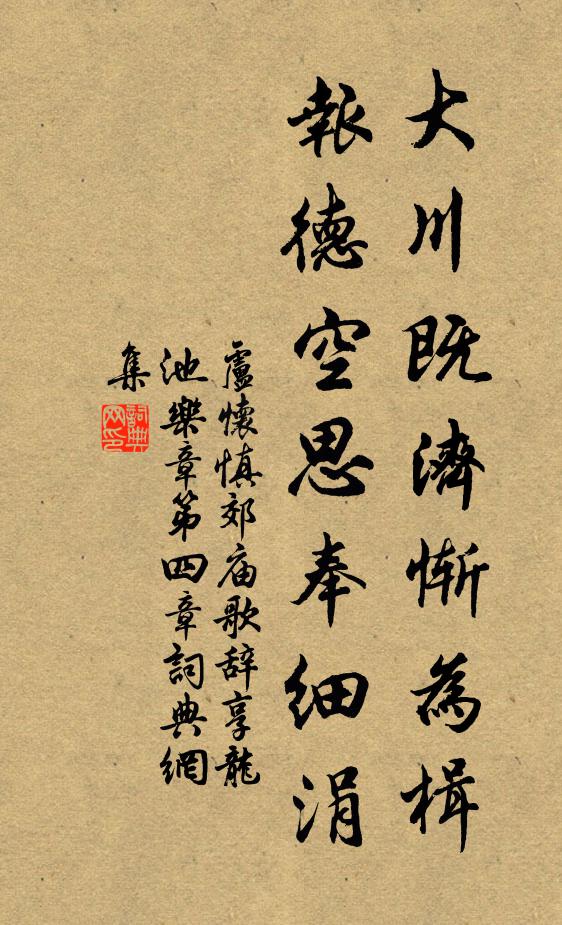 大川既濟慚為楫
報德空思奉細涓
盧懷慎郊庙歌辞享龍
池樂章第四章詞典網
集
詞典网印